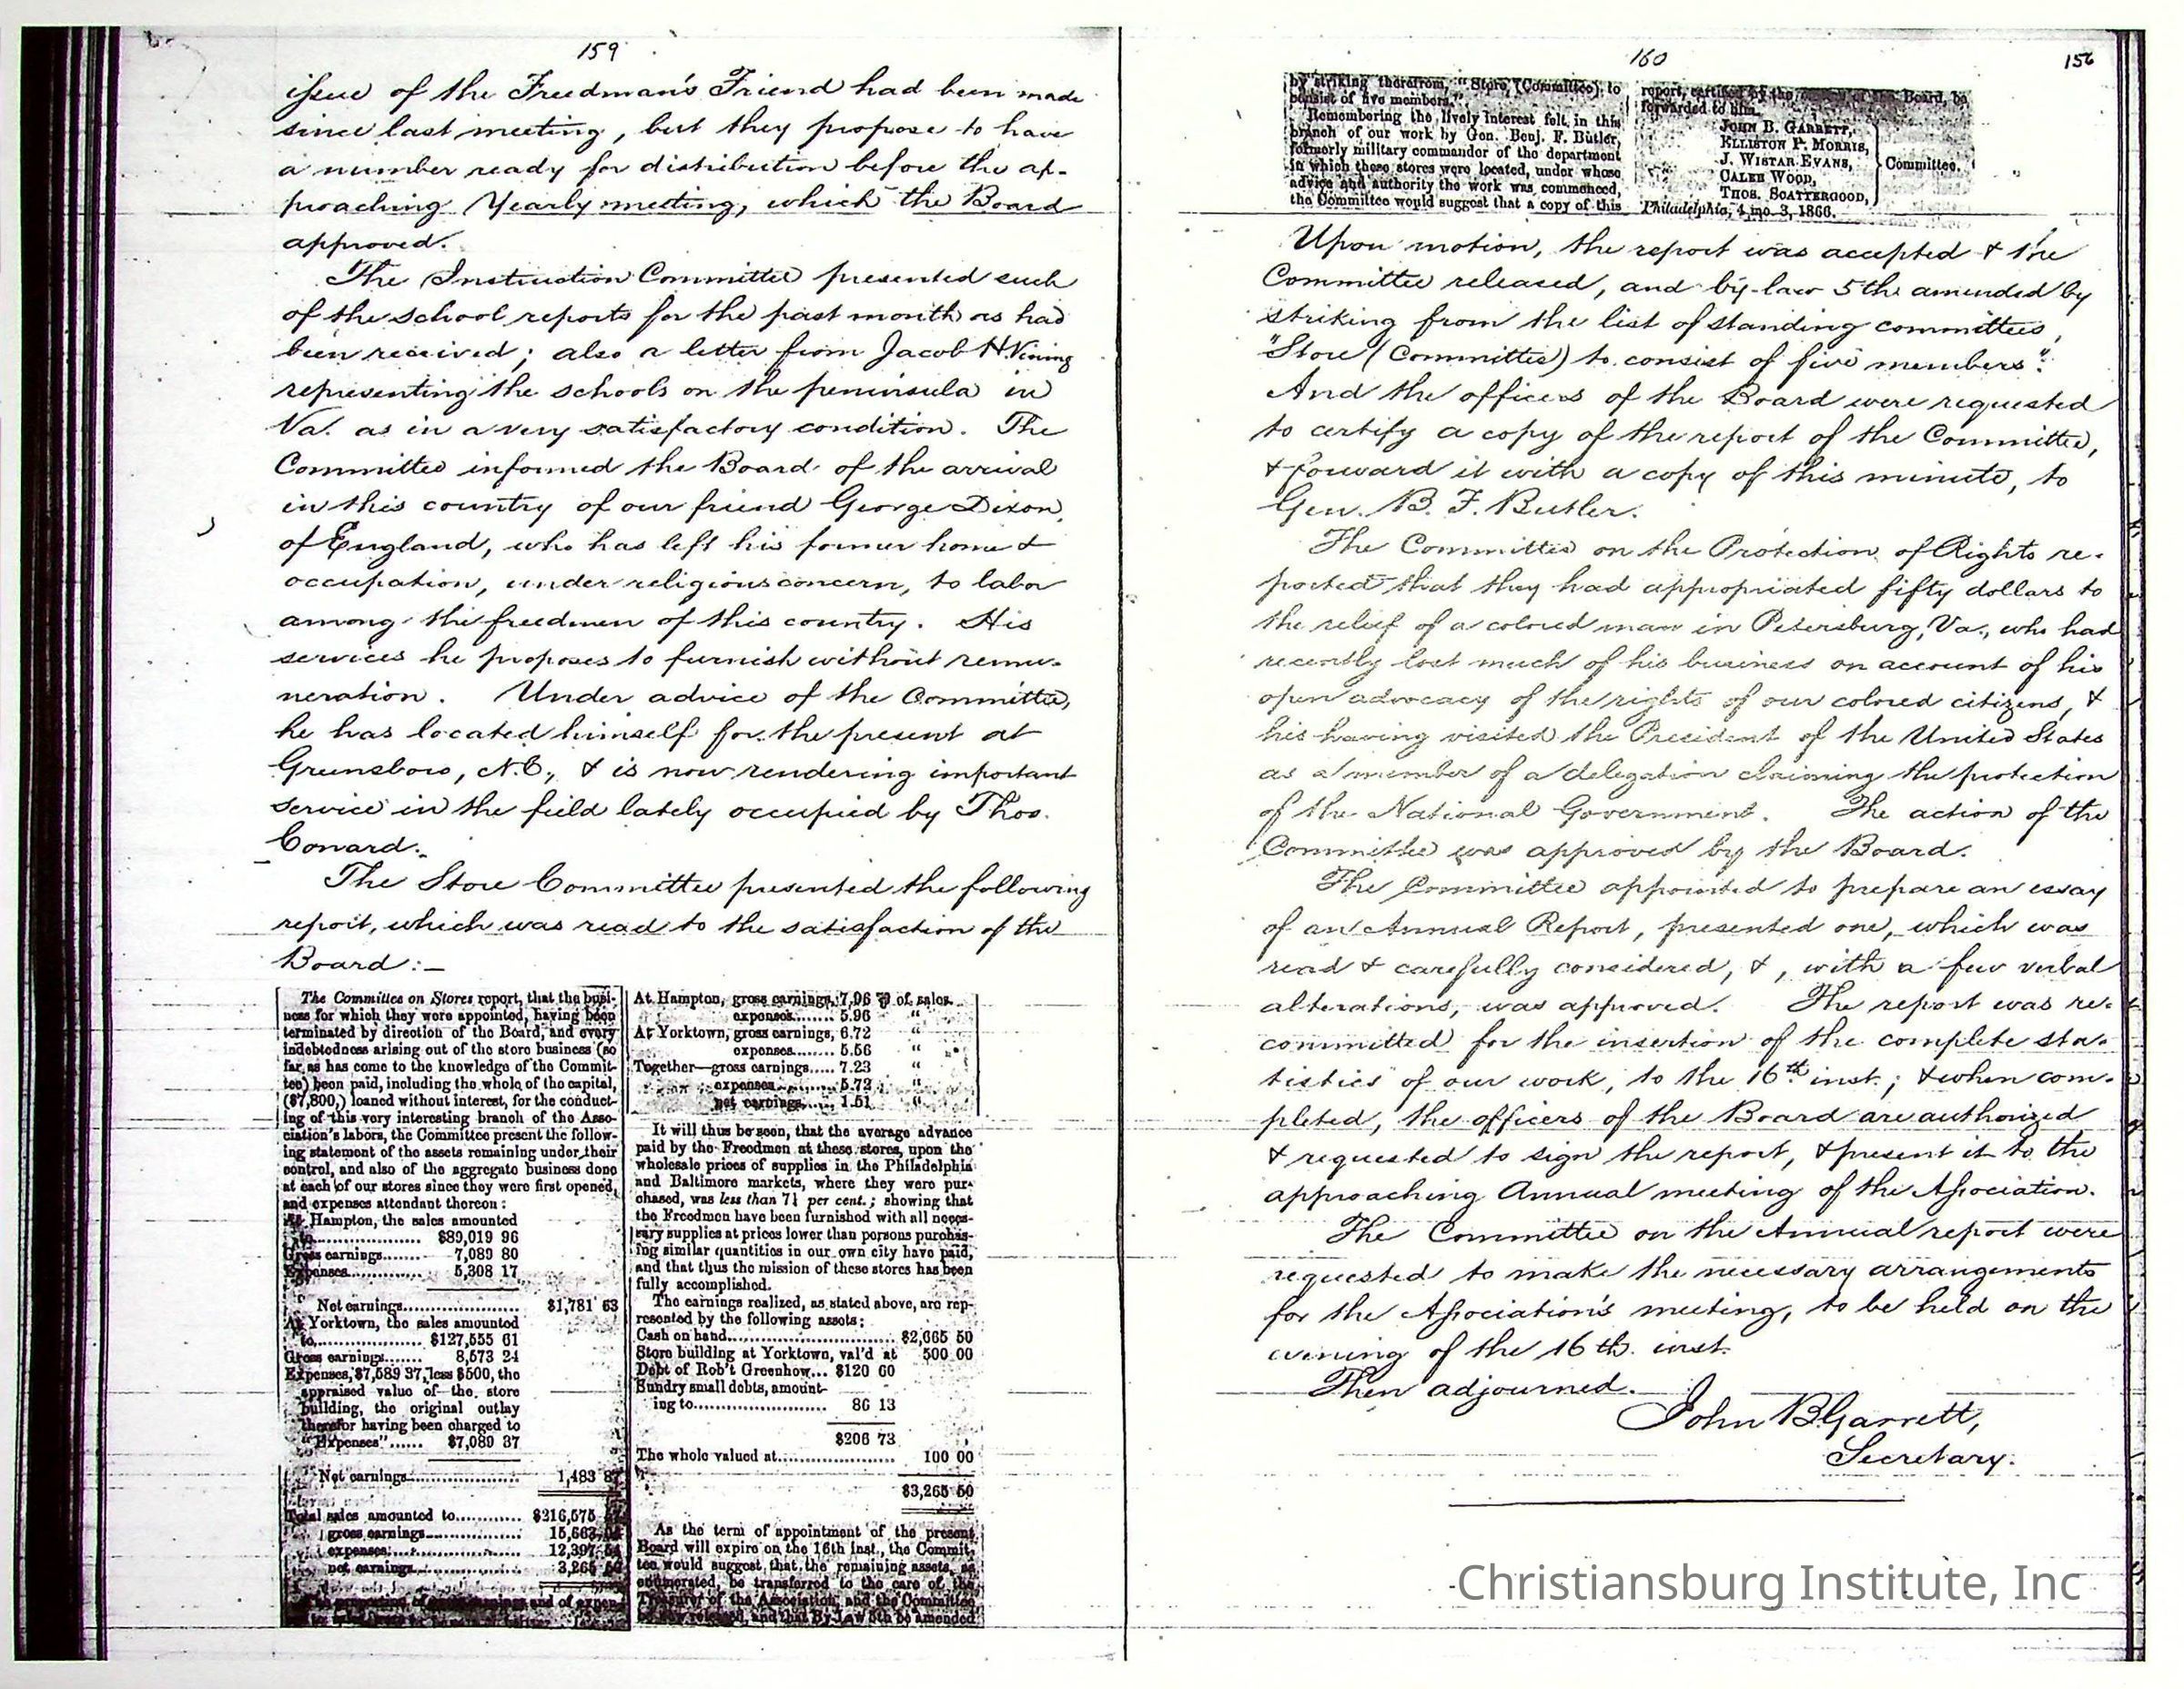 159
issue of the Freedman's Friend had been made
since last meeting, but they propose to have
a number ready for distribution before the ap-
proaching Yearly meeting, which the Board
approved.
The Instruction Committee presented such
of the school reports for the past month as had
been received; also a letter from Jacob H. Vining
representing the schools on the peninsula in
Va. as in a very satisfactory condition. The
Committee informed the Board of the arrival
in this country of our friend George Dixon,
of England, who has left his former home &
occupation, under religious concern, to labor
among the freedmen of this country. His
services he proposes to furnish without remu-
neration. Under advice of the Committee,
he has located himself for the present at
Greensboro, N.C., & is now rendering important
service in the field lately occupied by Thos.
Conard.
The Store Committee presented the following
report, which was read to the satisfaction of the
Board:—
The Committee on Stores report, that the busi-
ness for which they were appointed, having been
terminated by direction of the Board, and every
indebtedness arising out of the store business (so
far as has come to the knowledge of the Commit-
tee) been paid, including the whole of the capital,
($7,800,) loaned without interest, for the conduct-
ing of this very interesting branch of the Asso-
ciation's labors, the Committee present the follow-
ing statement of the assets remaining under their
control, and also of the aggregate business done
at each of our stores since they were first opened,
and expenses attendant thereon:
At Hampton, the sales amounted
to.................... $89,019 96
Gross earnings........ 7,089 80
Expenses.............. 5,308 17
Net earnings....................... $1,781 63
At Yorktown, the sales amounted
to.................... $127,555 61
Gross earnings........ 8,573 24
Expenses, $7,589 37, less $500, the
appraised value of the store
building, the original outlay
therefor having been charged to
"Expenses"...... $7,089 37
Net earnings....................... 1,483 87
Total sales amounted to............ $216,575
gross earnings................... 15,663
expenses......................... 12,397 54
net earnings..................... 3,265 50
At Hampton, gross earnings, 7.96 % of sales.
expenses........ 5.96 "
At Yorktown, gross earnings, 6.72 "
expenses........ 5.56 "
Together—gross earnings..... 7.23 "
expenses............ 5.72 "
net earnings....... 1.51 "
It will thus be seen, that the average advance
paid by the Freedmen at these stores, upon the
wholesale prices of supplies in the Philadelphia
and Baltimore markets, where they were pur-
chased, was less than 7¼ per cent.; showing that
the Freedmen have been furnished with all neces-
sary supplies at prices lower than persons purchas-
ing similar quantities in our own city have paid,
and that thus the mission of these stores has been
fully accomplished.
The earnings realized, as stated above, are rep-
resented by the following assets:
Cash on hand............................. $2,665 50
Store building at Yorktown, val'd at 500 00
Debt of Rob't Greenhow... $120 60
Sundry small debts, amount-
ing to........................ 86 13
$206 73
The whole valued at..................... 100 00
$3,265 50
As the term of appointment of the present
Board will expire on the 16th inst., the Commit-
tee would suggest that the remaining assets, as
enumerated, be transferred to the care of the
Treasurer of the Association, and the Committee
be now released, and that By-Law 5th be amended
160
156
by striking therefrom, "Store, (Committee), to
consist of five members."
Remembering the lively interest felt in this
branch of our work by Gen. Benj. F. Butler,
formerly military commander of the department
in which these stores were located, under whose
advice and authority the work was commenced,
the Committee would suggest that a copy of this
report, certified by the Board, be
forwarded to him.
JOHN B. GARRETT,
ELLISTON P. MORRIS,
J. WISTAR EVANS,
CALEB WOOD,
THOS. SCATTERGOOD,
Committee.
Philadelphia, 4 mo. 3, 1866.
Upon motion, the report was accepted & the
Committee released, and by-law 5th amended by
striking from the list of standing committees,
"Store (Committee) to consist of five members".
And the officers of the Board were requested
to certify a copy of the report of the Committee,
& forward it with a copy of this minute, to
Gen. B. F. Butler.
The Committee on the Protection of Rights re-
ported that they had appropriated fifty dollars to
the relief of a colored man in Petersburg, Va., who had
recently lost much of his business on account of his
open advocacy of the rights of our colored citizens, &
his having visited the President of the United States
as a member of a delegation claiming the protection
of the National Government. The action of the
Committee was approved by the Board.
The Committee appointed to prepare an essay
of an Annual Report, presented one, which was
read & carefully considered, &, with a few verbal
alterations, was approved. The report was re-
committed for the insertion of the complete sta-
tistics of our work, to the 16th inst.; & when com-
pleted, the officers of the Board are authorized
& requested to sign the report, & present it to the
approaching Annual meeting of the Association.
The Committee on the Annual report were
requested to make the necessary arrangements
for the Association's meeting, to be held on the
evening of the 16th. inst.
Then adjourned.
John B. Garrett,
Secretary.
Christiansburg Institute, Inc